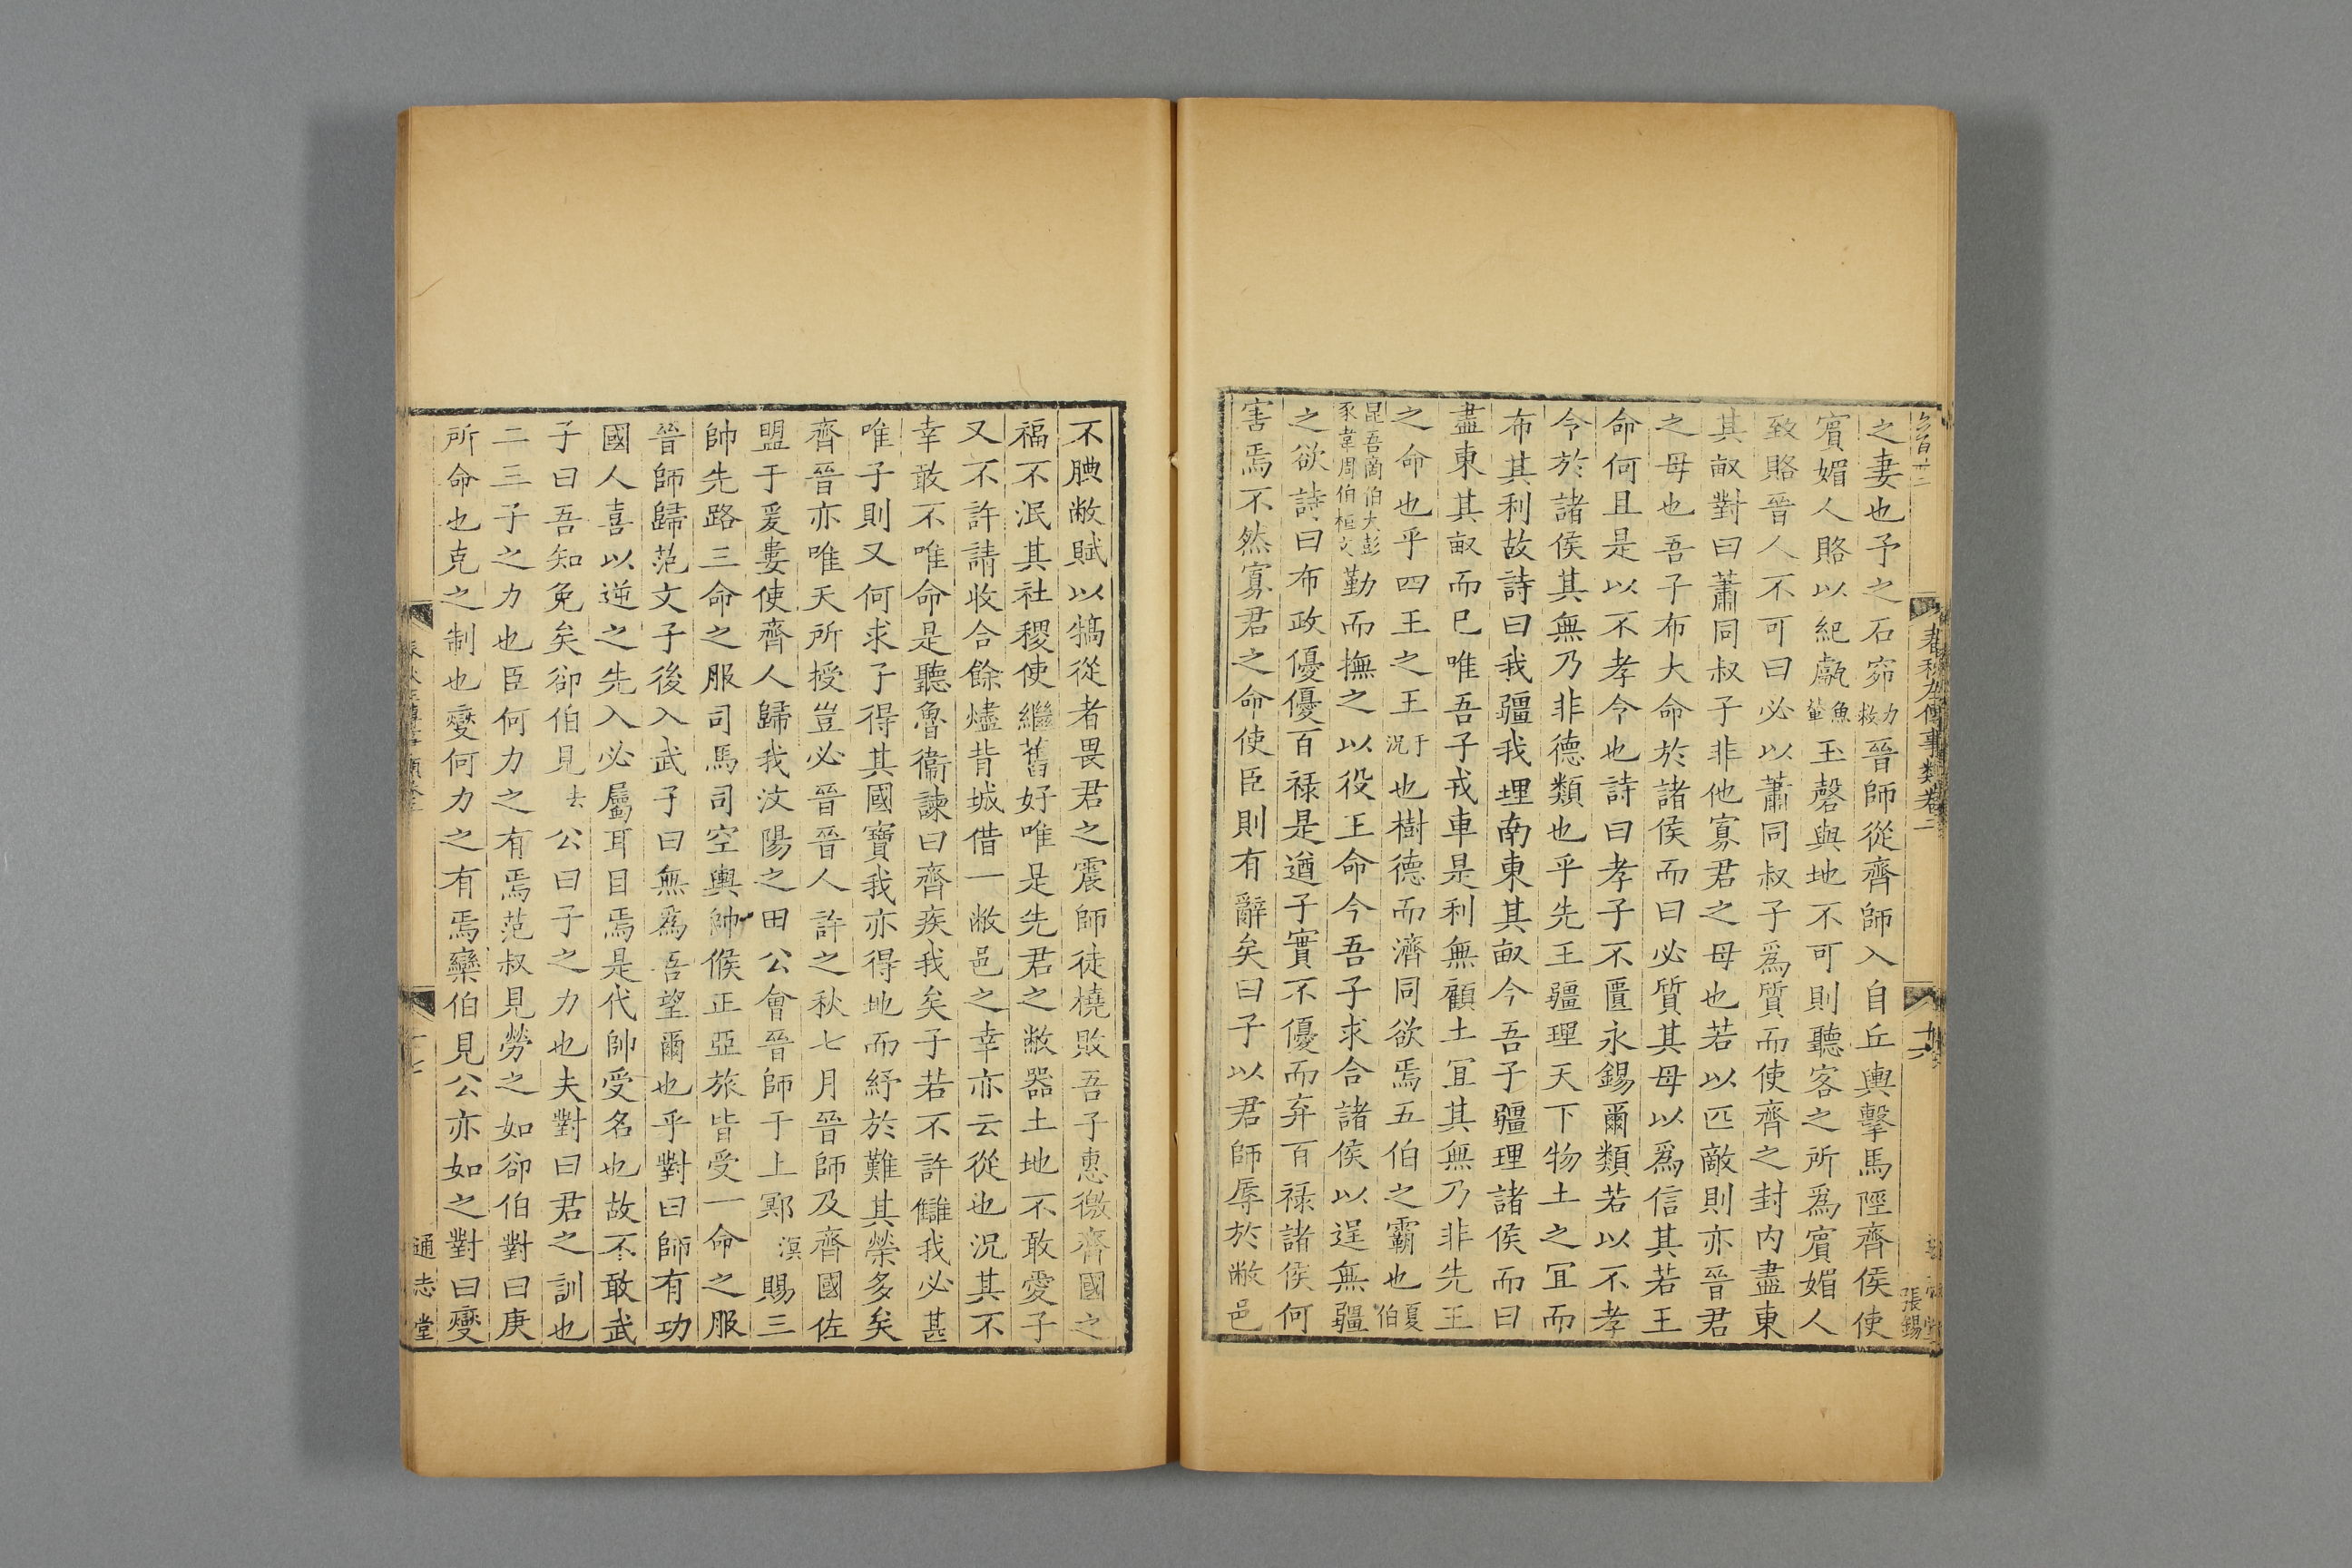 春秋左傳事類卷二
之妻也予之石窌力救晉師從齊師入自丘輿擊馬陘齊侯使
賓媚人賂以紀甗魚輦玉磬與地不可則聽客之所爲賓媚人
致賂晉人不可曰必以蕭同叔子爲質而使齊之封内盡東
其畝對曰蕭同叔子非他寡君之母也若以匹敵則亦晉君
之母也吾子布大命於諸侯而曰必質其母以爲信其若王
命何且是以不孝令也詩曰孝子不匱永錫爾類若以不孝
令於諸侯其無乃非德類也乎先王疆理天下物土之宜而
布其利故詩曰我疆我理南東其畝今吾子疆理諸侯而曰
盡東其畝而已唯吾子戎車是利無顧土宜其無乃非先王
之命也乎四王之王于況也樹德而濟同欲焉五伯之霸也夏伯
昆吾商伯大彭豕韋周伯桓文勤而撫之以役王命今吾子求合諸侯以逞無疆
之欲詩曰布政優優百祿是遒子實不優而弃百祿諸侯何
害焉不然寡君之命使臣則有辭矣曰子以君師辱於敝邑
不腆敝賦以犒從者畏君之震師徒橈敗吾子惠徼齊國之
福不泯其社稷使繼舊好唯是先君之敝器土地不敢愛子
又不許請收合餘燼背城借一敝邑之幸亦云從也況其不
幸敢不唯命是聽魯衞諫曰齊疾我矣子若不許讎我必甚
唯子則又何求子得其國寶我亦得地而紓於難其榮多矣
齊晉亦唯天所授豈必晉晉人許之秋七月晉師及齊國佐
盟于爰婁使齊人歸我汶陽之田公會晉師于上鄍溟賜三
帥先路三命之服司馬司空輿帥候正亞旅皆受一命之服
晉師歸范文子後入武子曰無爲吾望爾也乎對曰師有功
國人喜以逆之先入必屬耳目焉是代帥受名也故不敢武
子曰吾知免矣郤伯見去公曰子之力也夫對曰君之訓也
二三子之力也臣何力之有焉范叔見勞之如郤伯對曰庚
所命也克之制也燮何力之有焉欒伯見公亦如之對曰燮
通志堂